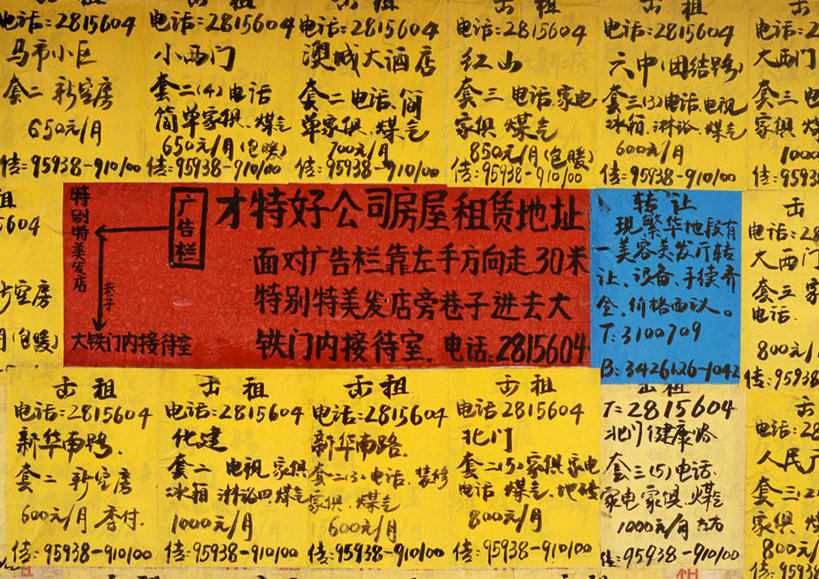 出租
电话:2815604
马市小区
套二 新空房
650元/月
传:95938-910100
出租
电话:2815604
小西门
套二(4)电话
简单家俱、煤气
650元/月(包暖)
传:95938-910100
出租
电话:2815604
澳城大酒店
套二 电话、简
单家俱、煤气
700元/月
传:95938-910100
出租
电话:2815604
红山
套三 电话、家电
家俱 煤气
850元/月(包暖)
传:95938-910100
出租
电话:2815604
六中(团结路)
套三(3)电话、电视
冰箱、淋浴、煤气
600元/月
传:95938-910100
出
电话:28
大西门
套三 电
家俱 煤
1000
传:95938
租
5604
空房
月(包暖)
特别特美发店
广告栏
巷子
大铁门内接待室
才特好公司房屋租赁地址
面对广告栏靠左手方向走30米
特别特美发店旁巷子进去大
铁门内接待室.电话:2815604
转让
现繁华地段有
一美容美发厅转
让、设备、手续齐
全、价格面议。
T:3100709
B:3426126-1042
出
电话:28
大西门
套三 家
电话.
800元/
传:95938
出租
电话:2815604
新华南路.
套二 新空房
600元/月 季付.
传:95938-910100
出租
电话:2815604
化建
套二 电视 家俱
冰箱 淋浴 煤气
1000元/月
传:95938-910100
出租
电话:2815604
新华南路.
套二(3)电话、装修
家俱、煤气
600元/月
传:95938-910100
出租
电话:2815604
北门
套二(5)家俱 家电
电话 煤气、地砖
800元/月
传:95938-910100
出租
T:2815604
北门健康路
套三(5)电话、
家电 家俱、煤气
1000元/月
传:95938-910100
出
电话:28
人民广
套三(2)
家俱 煤
800元/
传:9593